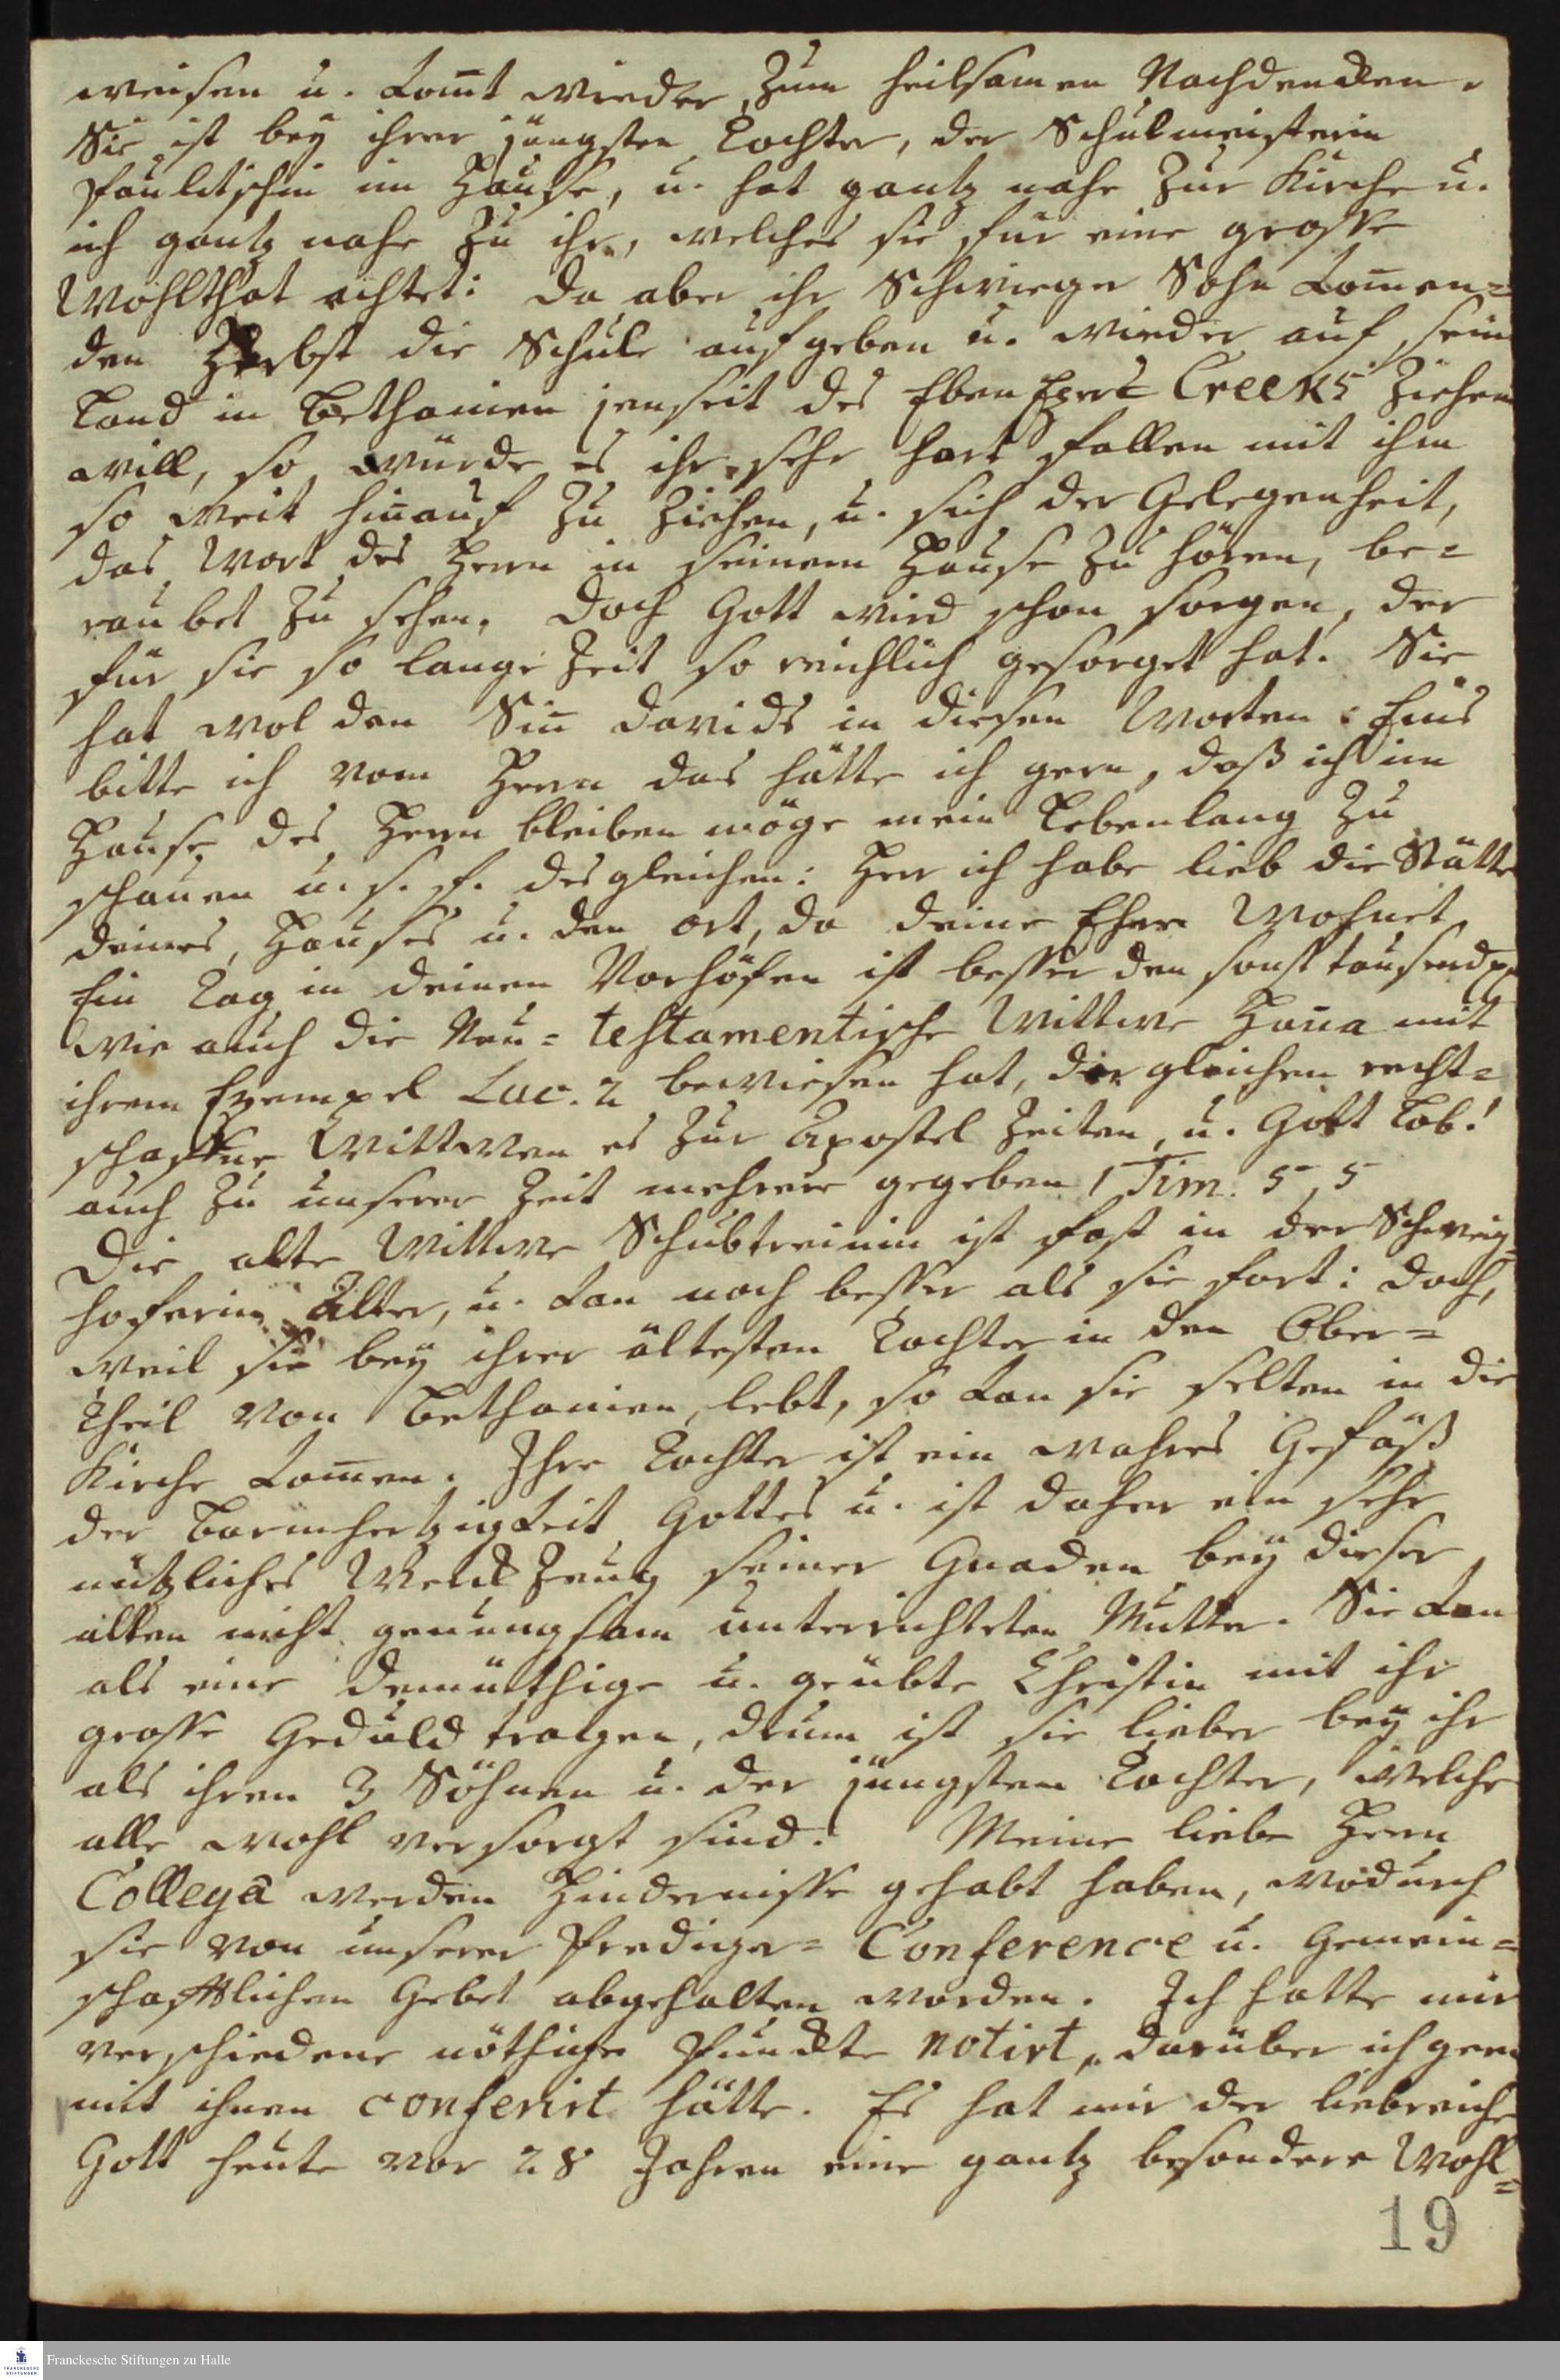 weisen u. kom̄t wieder zum heilsamen Nachdencken.
Sie ist bey ihrer jüngsten Tochter, der Schulmeisterin
Paulitschin im Hause, u. hat gantz nahe zur Kirche u.
ich gantz nahe zu ihr, welches sie für eine grosse
Wohlthat achtet: da aber ihr Schwieger Sohn kom̄en=
den Herbst die Schule aufgeben u. wieder auf sein
Land in Bethanien jenseit des Eben Ezers Creeks ziehen
will, so würde es ihr sehr hart fallen mit ihm
so weit hinauf zu ziehen, u. sich der Gelegenheit,
das Wort des Herrn in seinem Hause zu hören, be=
raubet zu sehen. Doch Gott wird schon sorgen, der
für sie so lange Zeit so reichlich gesorget hat. Sie
hat wol den Sin̄ Davids in diesen Worten: Eins
bitte ich vom Herrn das hätte ich gern, daß ich im
Hause des Herrn bleiben möge mein Lebenlang zu
schauen u. s. f. desgleichen: Herr ich habe lieb die Stätte
deines Hauses u. den Ort, da deine Ehre wohnet,
Ein Tag in deinen Vorhöfen ist besser den sonst tausend pp
Wie auch die Neu=testamentische Wittwe Han̄a mit
ihrem Exempel Luc. 2 bewiesen hat, dergleichen recht=
schaffne Wittwen es zur Apostel Zeiten, u. Gott Lob!
auch zu unserer Zeit mehrere gegeben 1 Tim. 5, 5
Die alte Wittwe Schubtreinin ist fast in der Schweig=
hoferin Alter, u. kan noch besser als sie fort: doch,
weil sie bey ihrer ältesten Tochter in den Ober=
Theil von Bethanien lebt, so kan sie selten in die
Kirche kom̄en. Ihre Tochter ist ein wahres Gefäß
der Barmhertzigkeit Gottes u. ist daher ein sehr
nützliches Werckzeug seiner Gnaden bey dieser
alten nicht genungsam unterrichteten Mutter. Sie kan
als eine demüthige u. geübte Christin mit ihr
grosse Geduld tragen, drum ist sie lieber bey ihr
als ihren 3 Söhnen u. der jüngsten Tochter, welche
alle wohl versorgt sind. Meine liebe Herrn
Collegā werden Hindernisse gehabt haben, wodurch
sie von unserer Prediger=Conference u. Gemein=
schafftlichen Gebet abgehalten worden. Ich hatte mir
verschiedene nöthige Punckte notirt, darüber ich gern
mit ihnen conferirt hätte. Es hat mir der liebreiche
Gott heute vor 28 Jahren eine gantz besondere Wohl=
19
Franckesche Stiftungen zu Halle